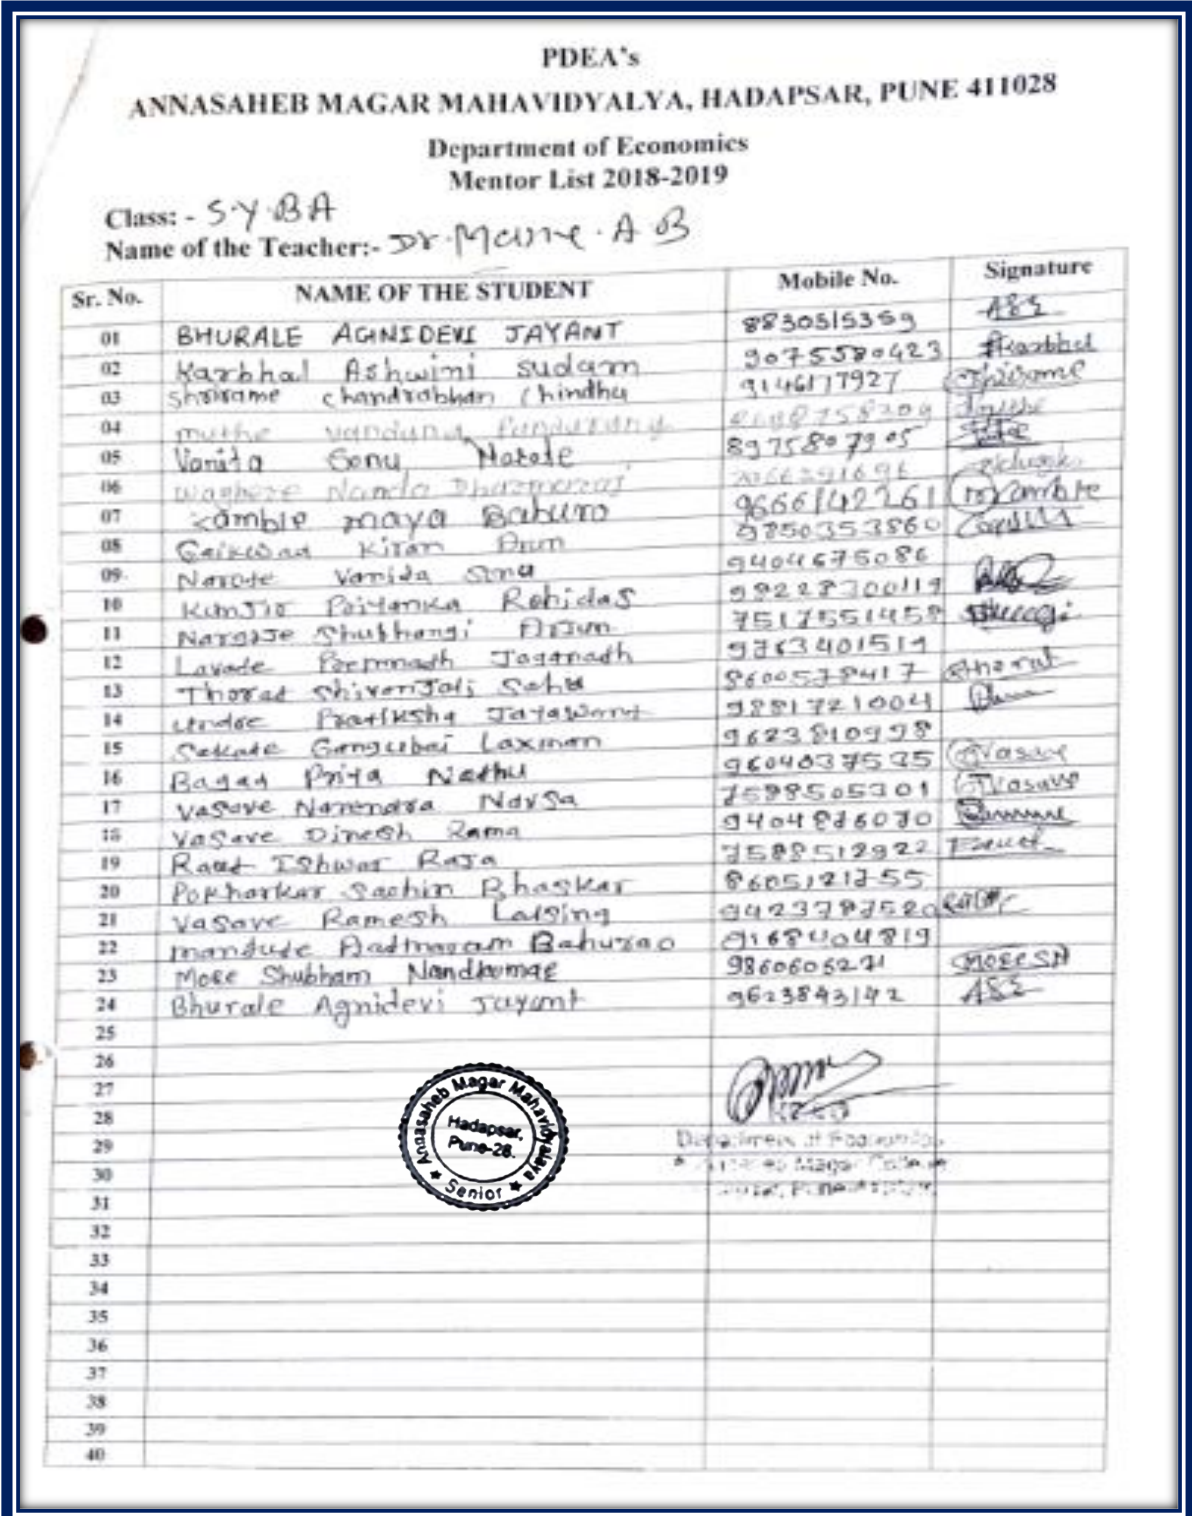 PDEA's
ANNASAHEB MAGAR MAHAVIDYALYA, HADAPSAR, PUNE 411028
Department of Economics
Mentor List 2018-2019
Class: - S.Y.BA
Name of the Teacher:- Dr. Mane. A B
Sr. No. NAME OF THE STUDENT Mobile No. Signature
01 BHURALE AGNIDEVI JAYANT 8830515359
02 Karbhal Ashwini Sudam 9075580423 Karbhal
03 Shrirame Chandrabhan Chindhu 9146177927
04 muthe vandana Pandurang
05 Vanita Sonu Narote 8975807905
06 Waghere Nanda Dharmaraj
07 Kamble maya Baburo 9666142261 Kamble
08 Gaikwad Kiran Arun 9850353860
09 Narote Vanida Sonu 9404675086
10 Kunjir Priyanka Rohidas
11 Nargaje Shubhangi Arjun 7517551458
12 Lavade Jaganadh 9763401519
13 Thorat Shivanjali 8600578417 Thorat
14 Undre Pratiksha Jayawant 9881721004
15 Sakate Gangubai Laxman 9623810998
16 Bagad Priya Nathu 9604037535 Vasave
17 Vasave Narendra Navsa 7588505301 Vasave
18 Vasave Dinesh Rama 9404876070
19 Raut Ishwar Raja 7588512922
20 Pokharkar Sachin Bhaskar 8605121755
21 Vasave Ramesh Lalsing 9423787520
22 Aadmaram Bahurao 9168404819
23 More Shubham Nandkumar 9860606271 MORE SN
24 Bhurale Agnidevi Jayant 9623843142
25
26
27
28
29
30
31
32
33
34
35
36
37
38
39
40
Annasaheb Magar Mahavidyalaya
Hadapsar,
Pune-28.
Senior
Department of Economics
Magar College